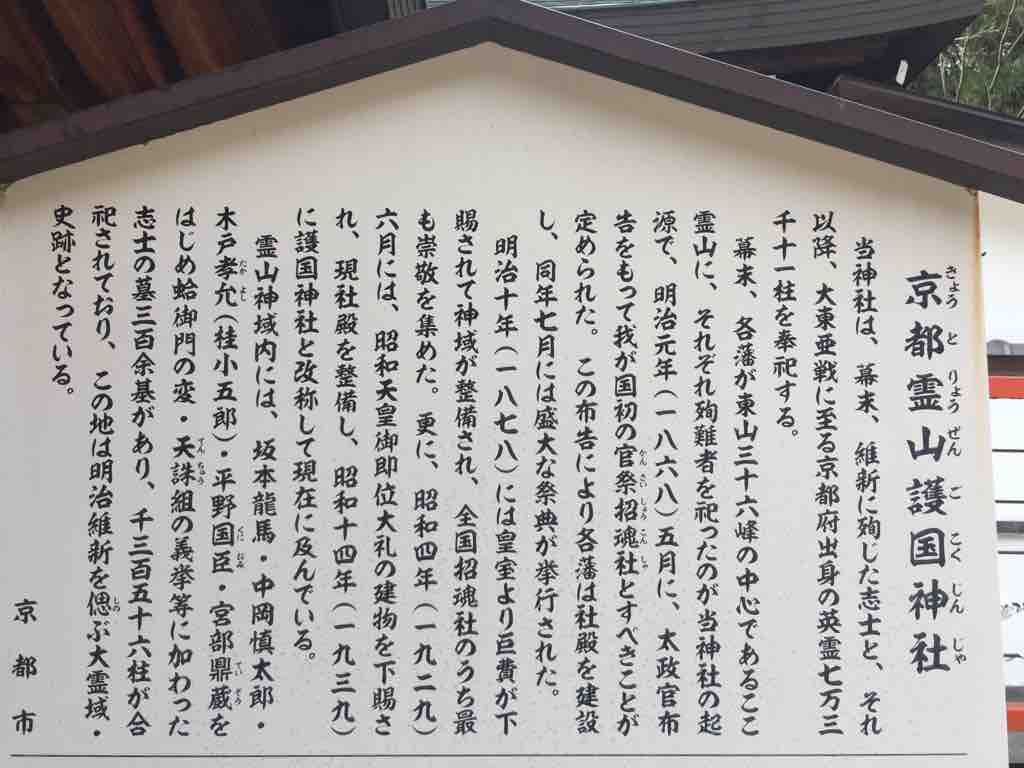 京都霊山護国神社
きょう と りょう ぜん ご こく じん じゃ
当神社は、幕末、維新に殉じた志士と、それ
以降、大東亜戦に至る京都府出身の英霊七万三
千十一柱を奉祀する。
幕末、各藩が東山三十六峰の中心であるここ
霊山に、それぞれ殉難者を祀ったのが当神社の起
源で、明治元年(一八六八)五月に、太政官布
告をもって我が国初の官祭招魂社とすべきことが
かん さい しょう こん しゃ
定められた。この布告により各藩は社殿を建設
し、同年七月には盛大な祭典が挙行された。
明治十年(一八七八)には皇室より巨費が下
賜されて神域が整備され、全国招魂社のうち最
も崇敬を集めた。更に、昭和四年(一九二九)
六月には、昭和天皇御即位大礼の建物を下賜さ
れ、現社殿を整備し、昭和十四年(一九三九)
に護国神社と改称して現在に及んでいる。
霊山神域内には、坂本龍馬・中岡慎太郎・
木戸孝允(桂小五郎)・平野国臣・宮部鼎蔵を
たか よし くに おみ てい ぞう
はじめ蛤御門の変・天誅組の義挙等に加わった
てん ちゅう
志士の墓三百余基があり、千三百五十六柱が合
祀されており、この地は明治維新を偲ぶ大霊域・
しの
史跡となっている。
京都市